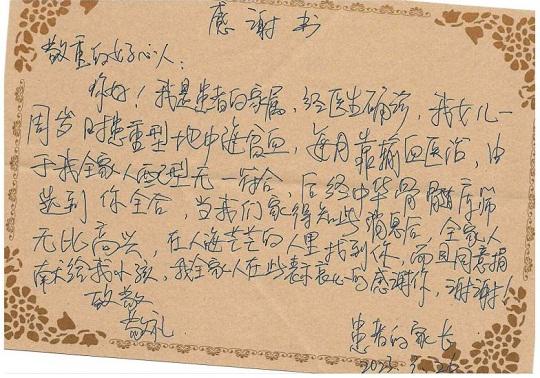 感谢书
敬重的好心人：
你好！我是患者的家属，经医生确诊，我女儿一
周岁时患重型地中海贫血，每月靠输血医治，由
于我全家人配型无一符合，后经中华骨髓库筛
选到你全合，当我们家得知此消息后，全家人
无比高兴，在人海茫茫的人里找到你，而且同意捐
献给我小孩，我全家人在此表衷心的感谢你，谢谢！
致敬
敬礼
患者的家长
2023.